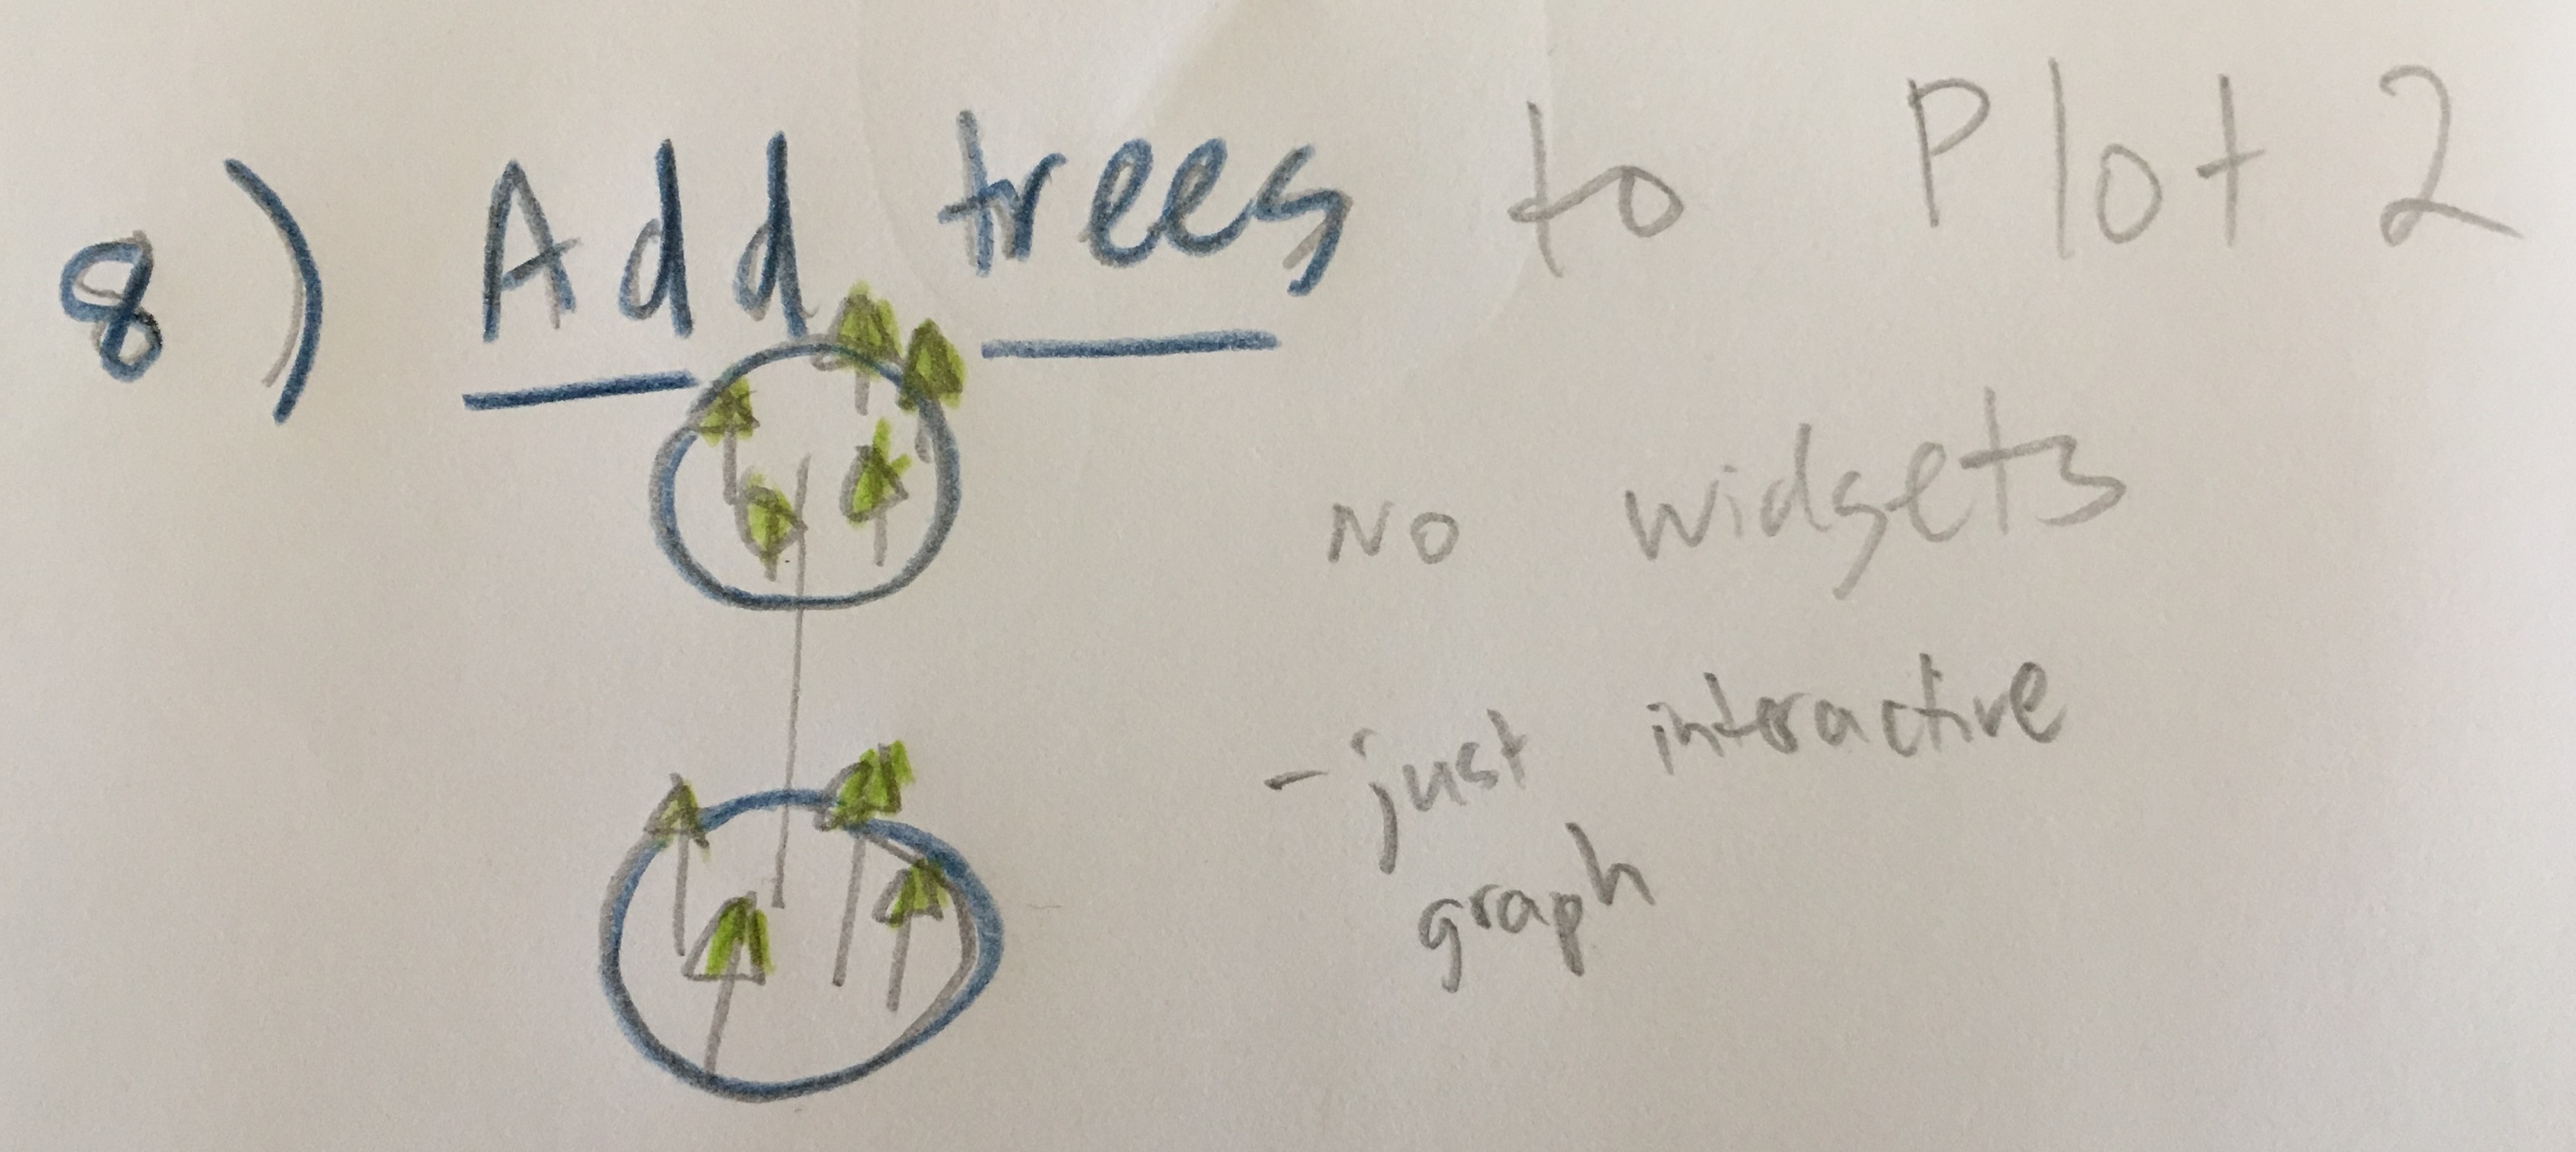 8) Add trees to Plot 2
No widgets
- just interactive
graph